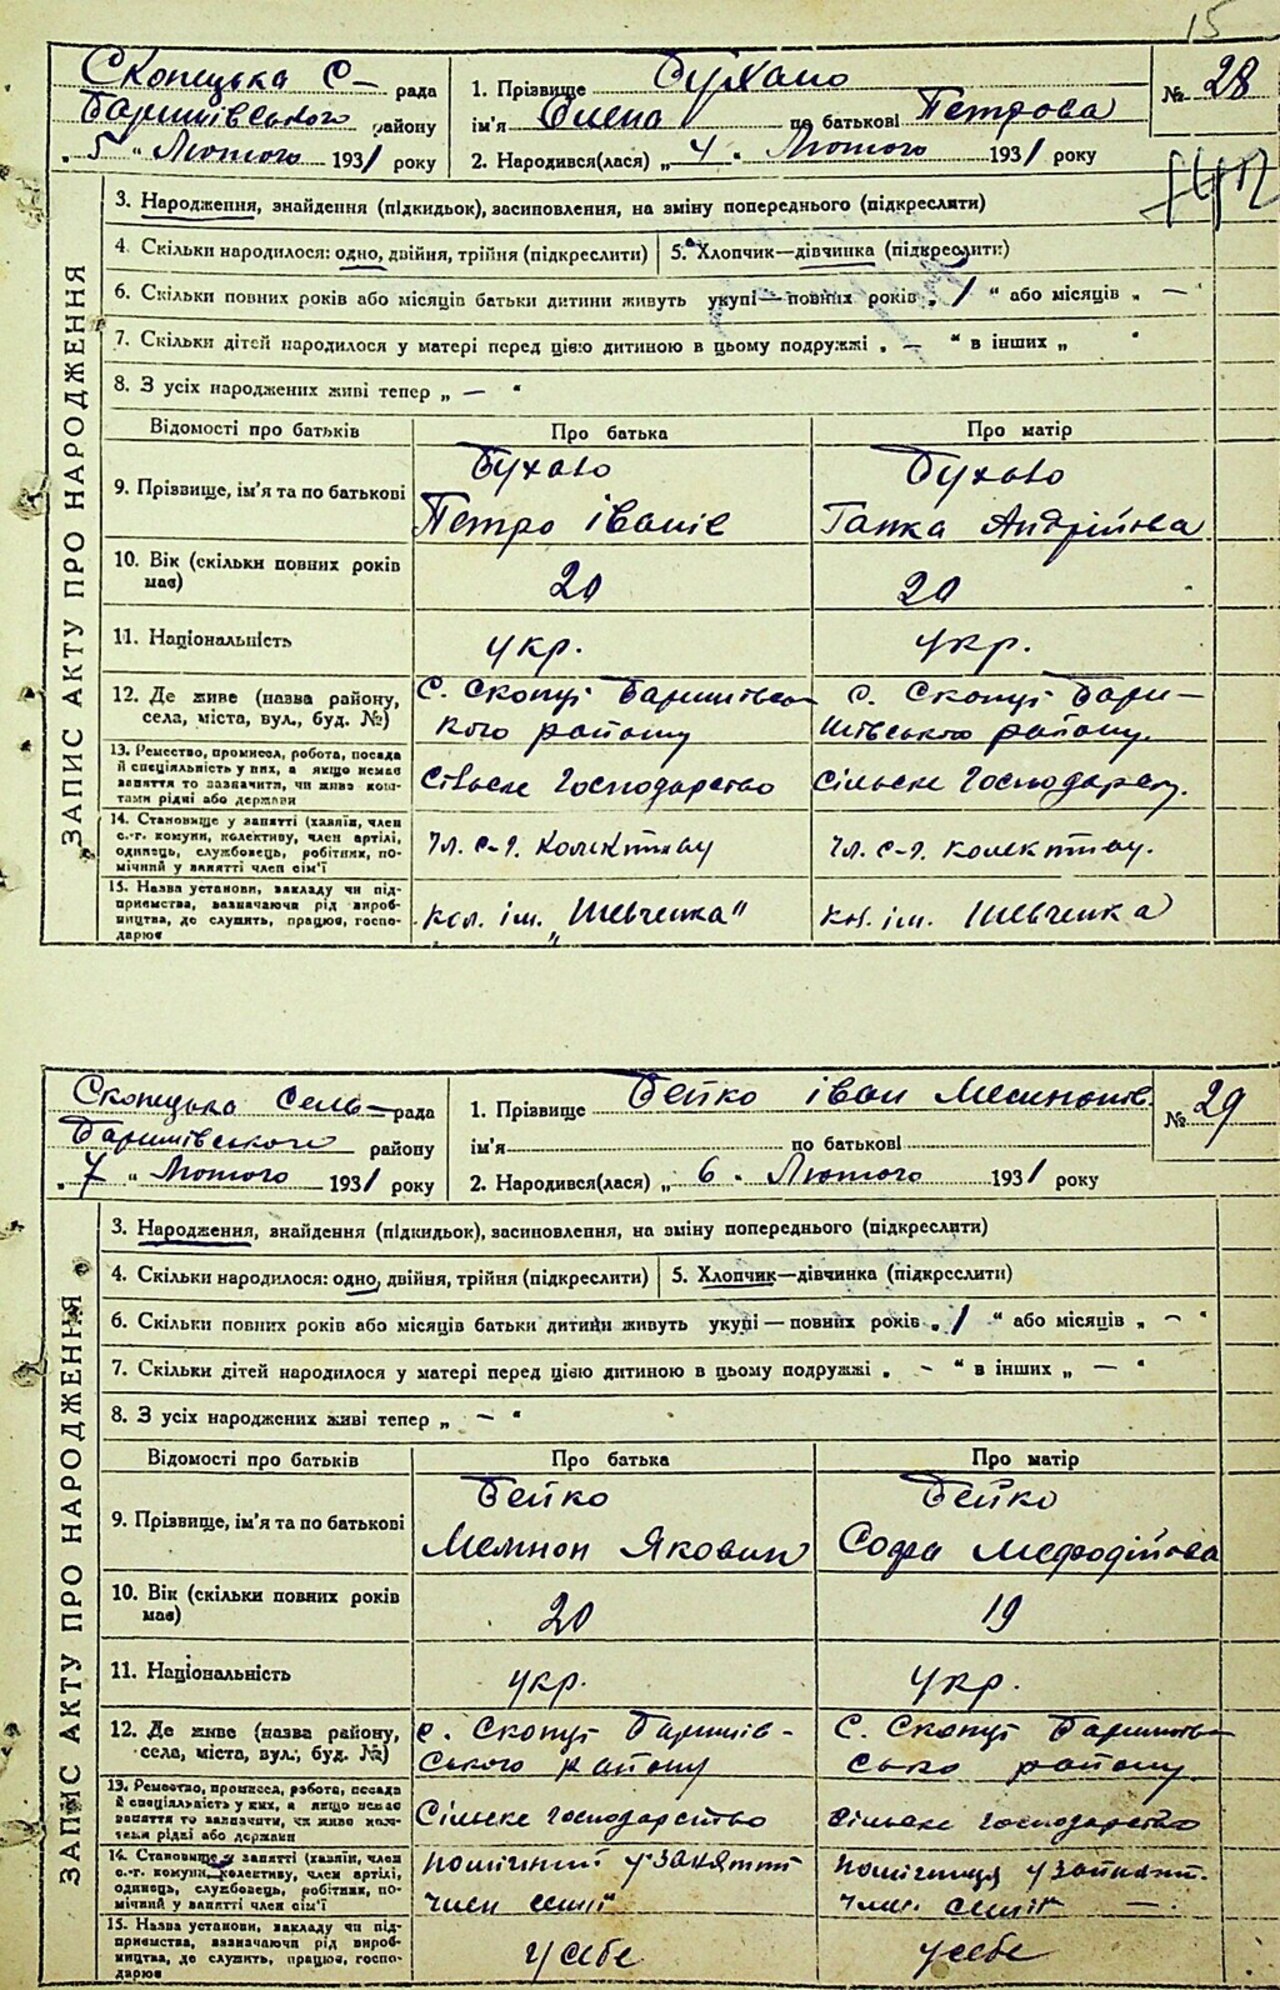 15
Скопецька С- рада
Баришівського району
„5“ Лютого 1931 року
1. Прізвище Бухало
ім'я Олена по батькові Петрова
2. Народився(лася) „4“ Лютого 1931 року
№ 28
ЗАПИС АКТУ ПРО НАРОДЖЕННЯ
3. Народження, знайдення (підкидьок), засиновлення, на зміну попереднього (підкреслити)
4. Скільки народилося: одно, двійня, трійня (підкреслити)
5. Хлопчик—дівчинка (підкреслити)
6. Скільки повних років або місяців батьки дитини живуть укупі—повних років „1“ або місяців „—“
7. Скільки дітей народилося у матері перед цією дитиною в цьому подружжі „—“ в інших „ “
8. З усіх народжених живі тепер „—“
Відомості про батьків Про батька Про матір
9. Прізвище, ім'я та по батькові
Бухало
Петро Іванів
Бухало
Гапка Андрійова
10. Вік (скільки повних років має)
20
20
11. Національність
укр.
укр.
12. Де живе (назва району,
села, міста, вул., буд. №)
с. Скопці Баришівсь-
кого району
с. Скопці Бари-
шівського району.
13. Ремество, промисел, робота, посада
й спеціяльність у них, а якщо немає
заняття то зазначити, чи живе кош-
тами рідні або держави
Сільське Господарство
Сільське Господарст.
14. Становище у занятті (хазяїн, член
с.-г. комуни, колективу, член артілі,
одинець, службовець, робітник, по-
мічний у занятті член сім'ї
Чл. с-г. колективу
чл. с-г. колективу.
15. Назва установи, закладу чи під-
приємства, зазначаючи рід вироб-
ництва, де служить, працює, госпо-
дарює
кол. ім. „Шевченка“
кол. ім. Шевченка
Скопецька Сель- рада
Баришівського району
„7“ Лютого 1931 року
1. Прізвище Бейко Іван Мемнонів.
ім'я по батькові
2. Народився(лася) „6“ Лютого 1931 року
№ 29
ЗАПИС АКТУ ПРО НАРОДЖЕННЯ
3. Народження, знайдення (підкидьок), засиновлення, на зміну попереднього (підкреслити)
4. Скільки народилося: одно, двійня, трійня (підкреслити)
5. Хлопчик—дівчинка (підкреслити)
6. Скільки повних років або місяців батьки дитини живуть укупі—повних років „1“ або місяців „—“
7. Скільки дітей народилося у матері перед цією дитиною в цьому подружжі „—“ в інших „—“
8. З усіх народжених живі тепер „—“
Відомості про батьків Про батька Про матір
9. Прізвище, ім'я та по батькові
Бейко
Мемнон Якович
Бейко
Софія Мефодійова
10. Вік (скільки повних років має)
20
19
11. Національність
укр.
укр.
12. Де живе (назва району,
села, міста, вул., буд. №)
с. Скопці Баришів-
ського району
С. Скопці Баришів-
сько району
13. Ремество, промисел, робота, посада
й спеціяльність у них, а якщо немає
заняття то зазначити, чи живе кош-
тами рідні або держави
Сільське господарство
Сільське господарство
14. Становище у занятті (хазяїн, член
с.-г. комуни, колективу, член артілі,
одинець, службовець, робітник, по-
мічний у занятті член сім'ї
помічний у занятті
член семії
помічниця у
член. семії —.
15. Назва установи, закладу чи під-
приємства, зазначаючи рід вироб-
ництва, де служить, працює, госпо-
дарює
у себе
у себе